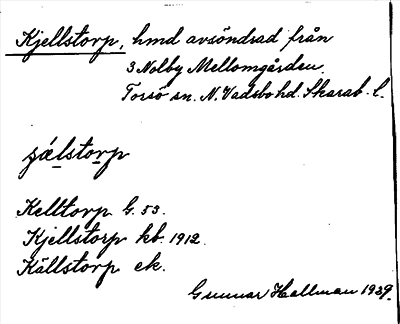 Kjellstorp, hmd avsöndrad från
3 Nolby Mellomgården.
Torsö sn. N. Vadsbo hd. Skarab. l.
Kelltorp G. 53.
Kjellstorp kb. 1912.
Källstorp ek.
Gunnar Hallman 1939.